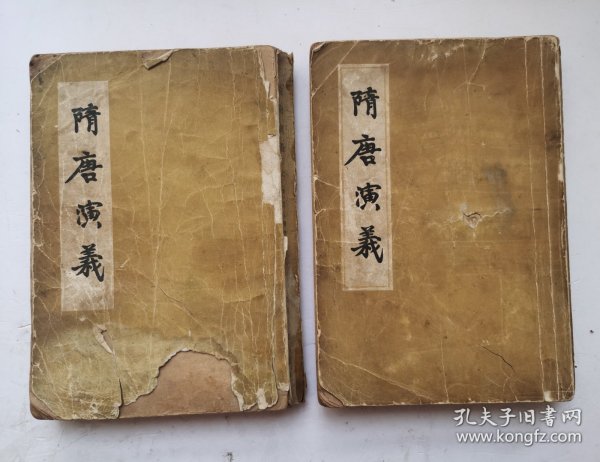 隋唐演義
隋唐演義
孔夫子旧书网
www.kongfz.com